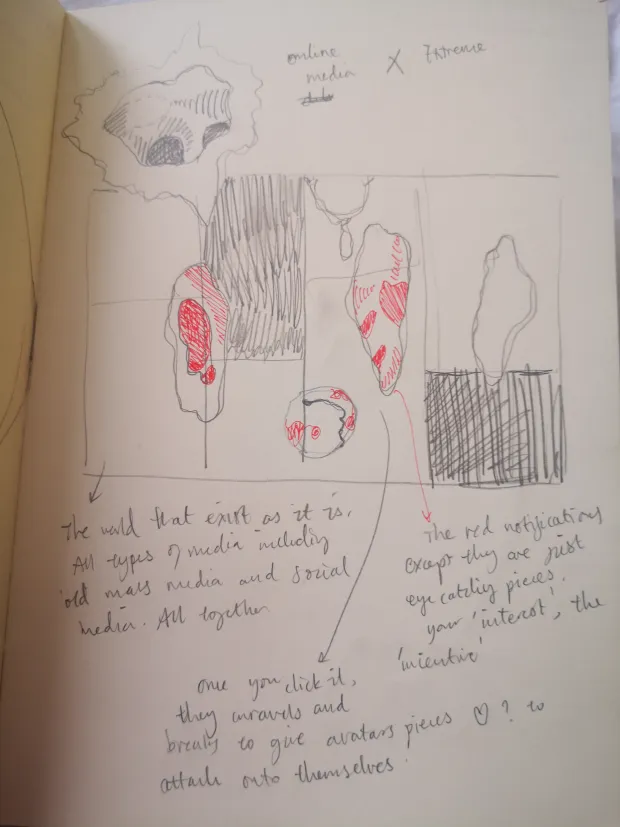 online
media
X
Extreme
The world that exist as it is.
All types of media including
old mass media and social
media. All together
The red notifications
except they are just
eye catching pieces.
your 'interest', the
'incentive'
once you click it,
they unravels and
breaks to give avatars pieces ♡? to
attach onto themselves.